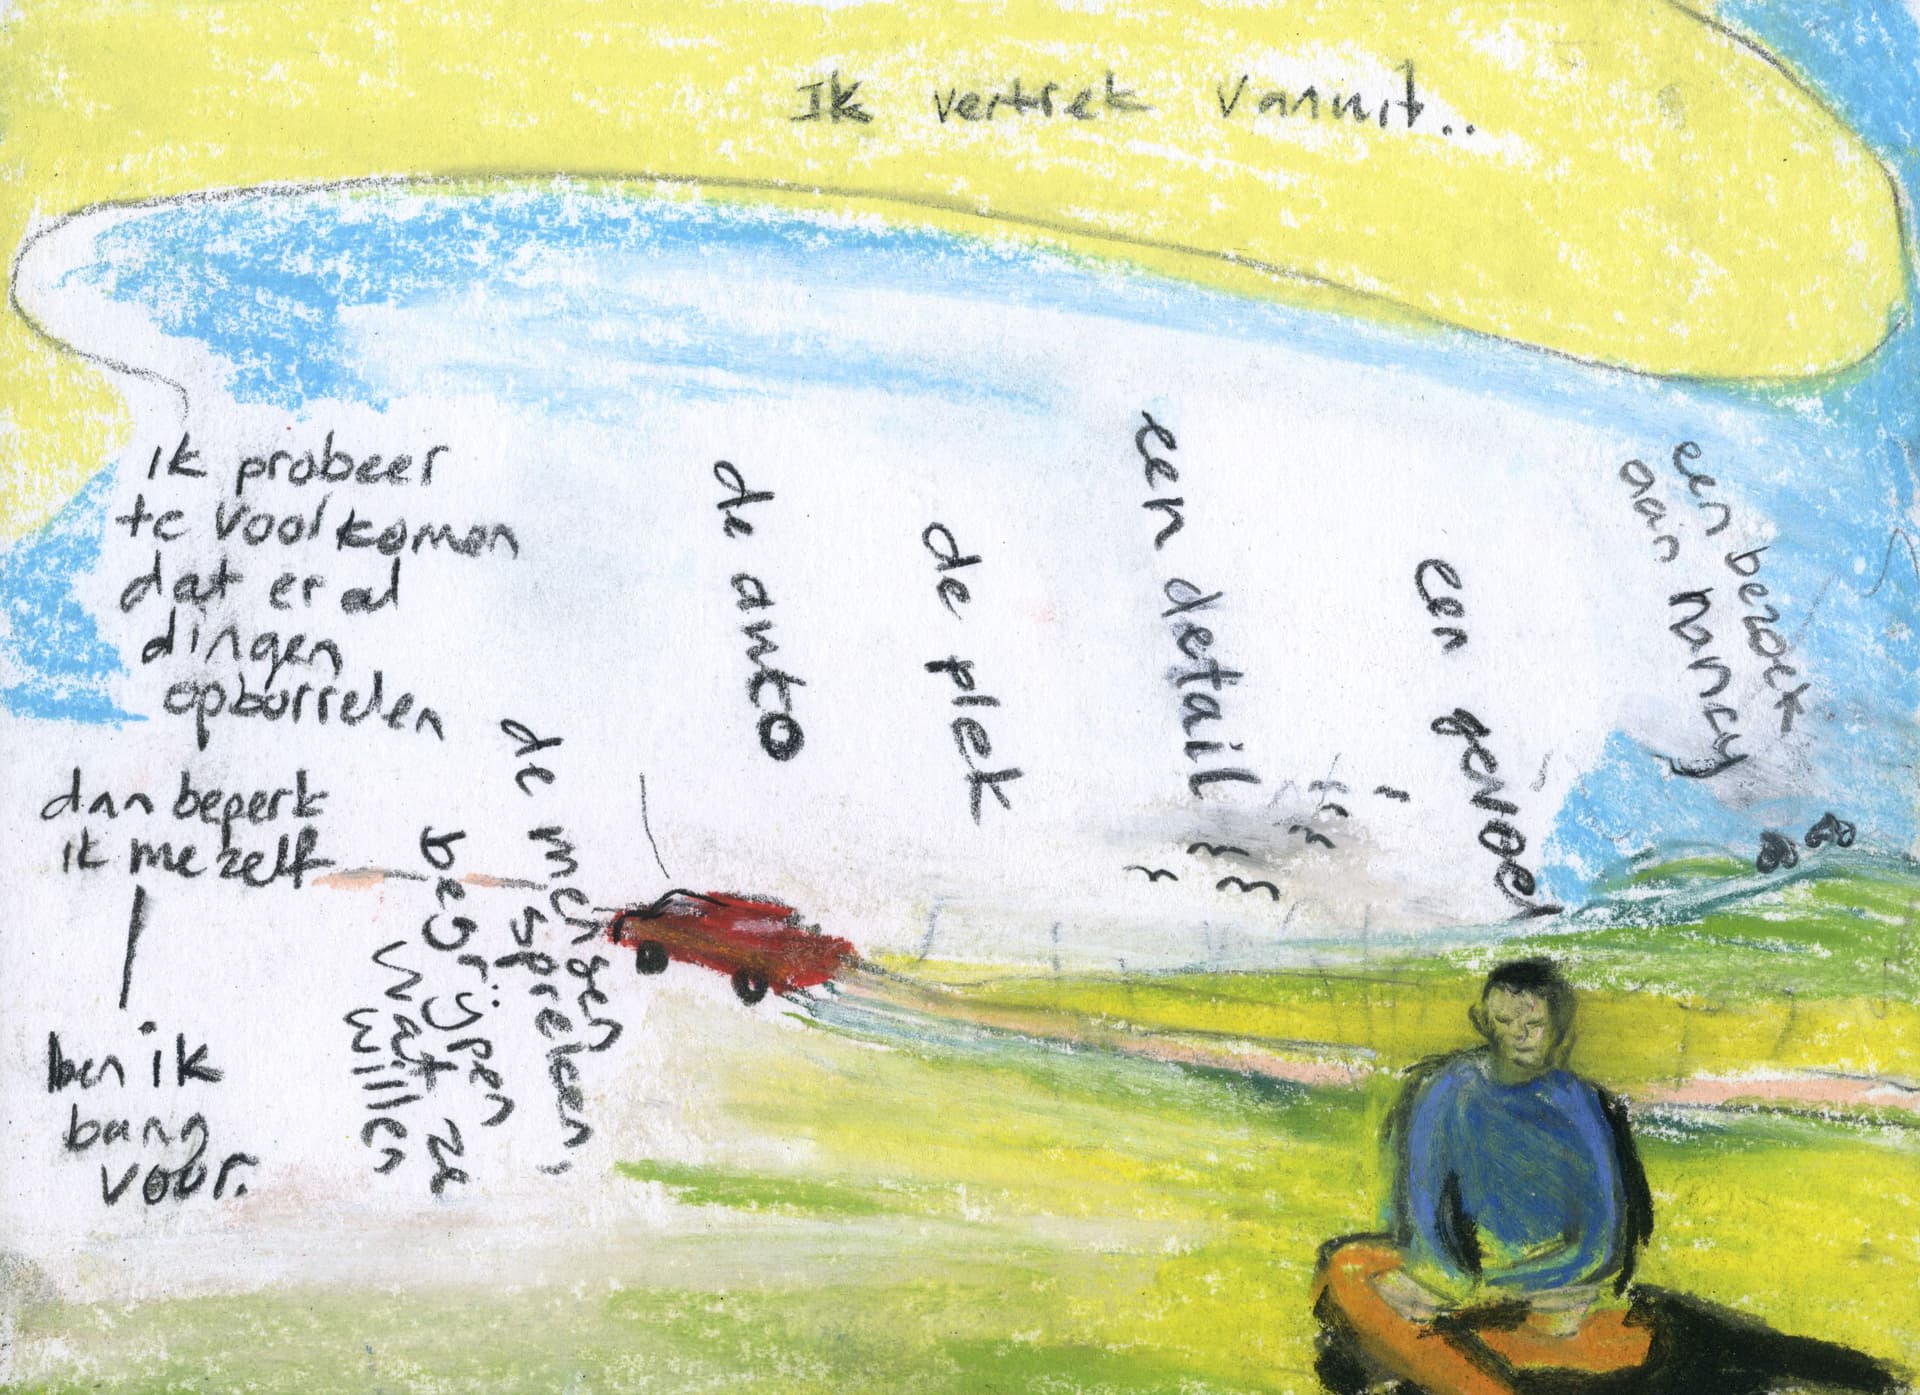 Ik vertrek vanuit..
ik probeer
te voorkomen
dat er al
dingen
opborrelen
dan beperk
ik mezelf
ben ik
bang
voor.
de mensen
spreken,
begrijpen
wat ze
willen
de auto
de plek
een detail
een gevoel
een bezoek
aan nancy